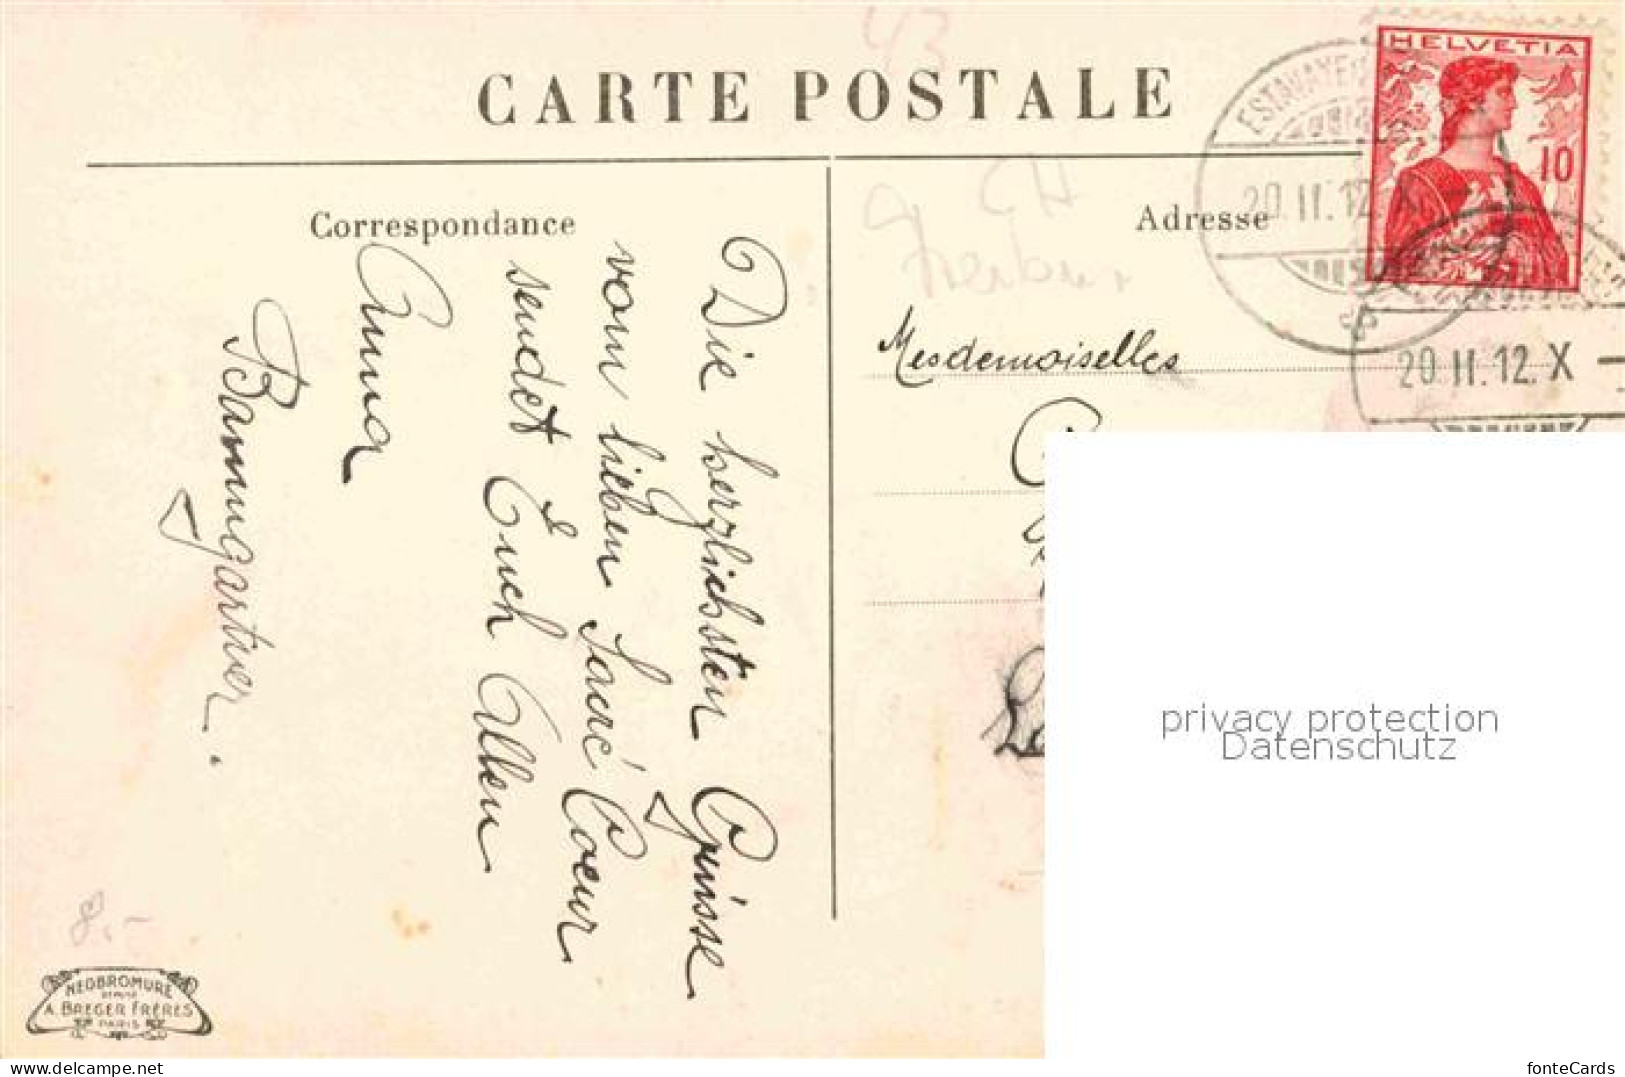 CARTE POSTALE
Correspondance
Adresse
HELVETIA
10
ESTAVAYER
20.II.12.X
20.II.12.X
43
CH
Mesdemoiselles
Die herzlichsten Grüsse
vom lieben Sacré Coeur
sendet Euch Allen
Anna
Baumgartner.
8.-
NEOBROMURE
A. BREGER FRÈRES
PARIS
privacy protection
Datenschutz
fonteCards
www.delcampe.net